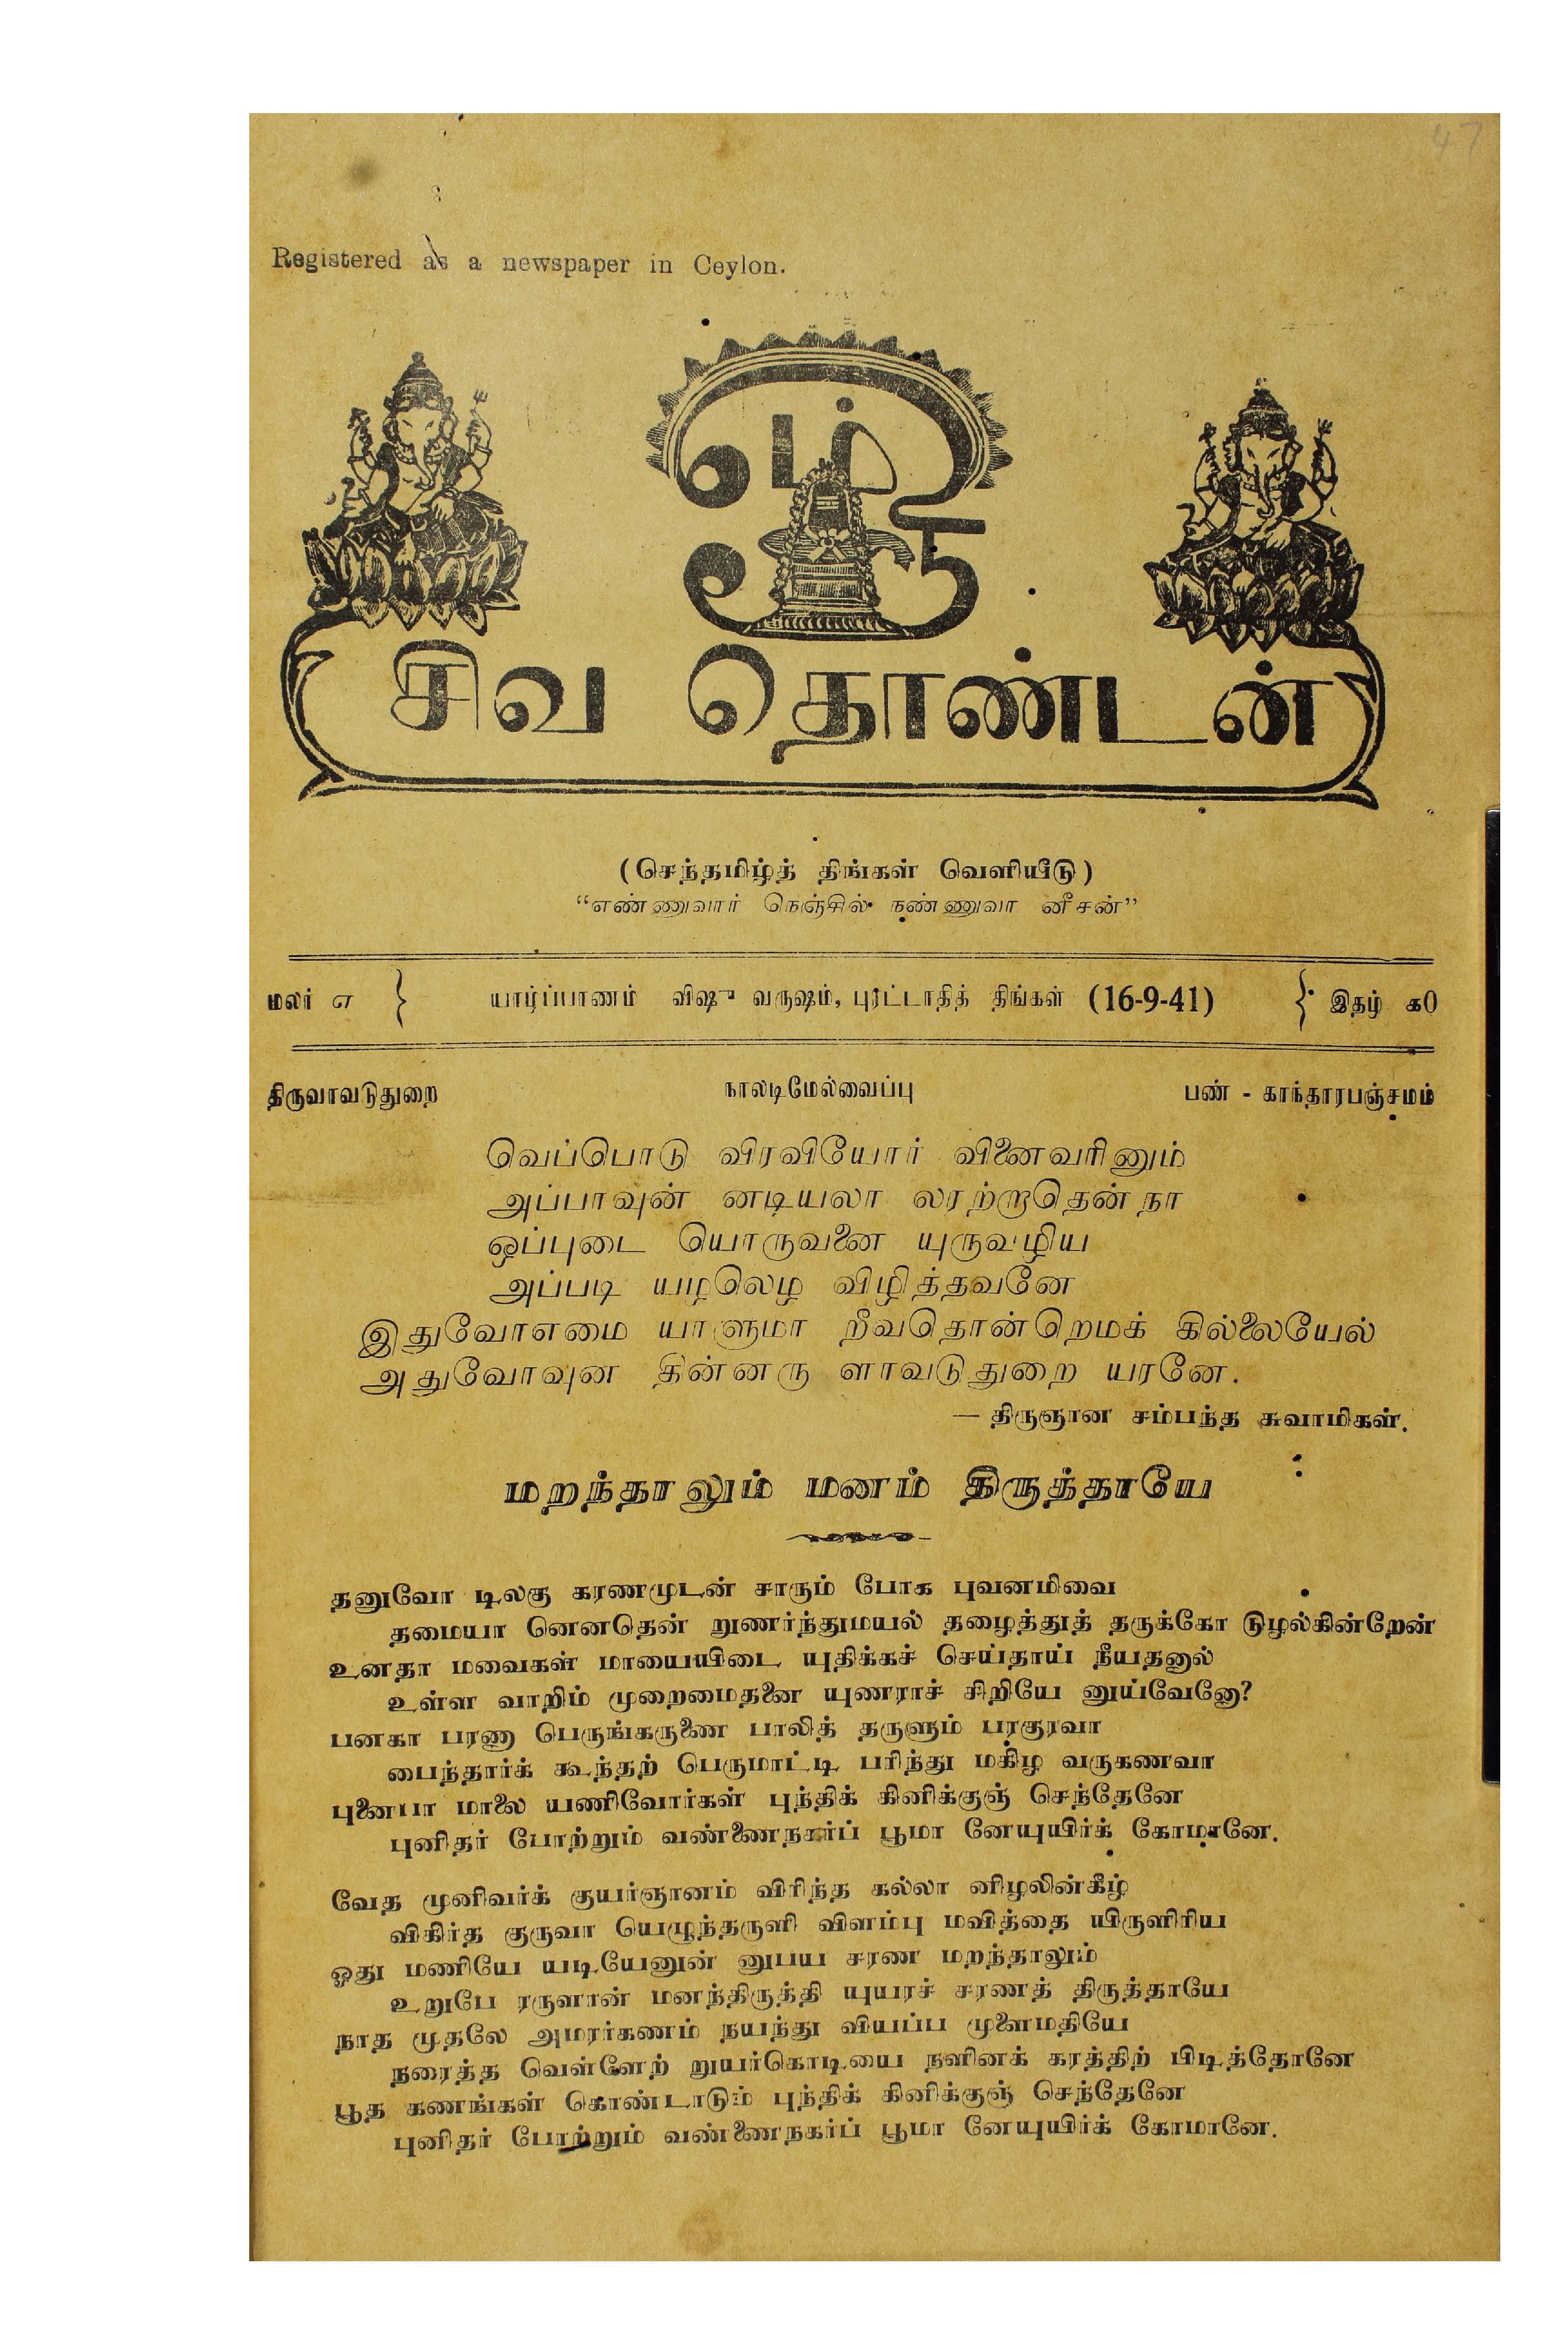 47
Registered as a newspaper in Ceylon.
ஓம்
சிவ தொண்டன்
(செந்தமிழ்த் திங்கள் வெளியீடு)
“எண்ணுவார் நெஞ்சில் நண்ணுவா னீசன்”
மலர் எ } யாழ்ப்பாணம் விஷு வருஷம், புரட்டாதித் திங்கள் (16-9-41) { இதழ் க0
திருவாவடுதுறை நாலடிமேல்வைப்பு பண் - காந்தாரபஞ்சமம்
வெப்பொடு விரவியோர் வினைவரினும்
அப்பாவுன் னடியலா லரற்றாதென் நா
ஒப்புடை யொருவனை யுருவழிய
அப்படி யழலெழ விழித்தவனே
இதுவோஎமை யாளுமா றீவதொன்றெமக் கில்லையேல்
அதுவோவுன தின்னரு ளாவடுதுறை யரனே.
— திருஞான சம்பந்த சுவாமிகள்.
மறந்தாலும் மனம் திருத்தாயே
தனுவோ டிலகு கரணமுடன் சாரும் போக புவனமிவை
தமையா னெனதென் றுணர்ந்துமயல் தழைத்துத் தருக்கோ டுழல்கின்றேன்
உனதா மவைகள் மாயையிடை யுதிக்கச் செய்தாய் நீயதனால்
உள்ள வாறிம் முறைமைதனை யுணராச் சிறியே னுய்வேனோ?
பனகா பரணா பெருங்கருணை பாலித் தருளும் பரகுரவா
பைந்தார்க் கூந்தற் பெருமாட்டி பரிந்து மகிழ வருகணவா
புனைபா மாலை யணிவோர்கள் புந்திக் கினிக்குஞ் செந்தேனே
புனிதர் போற்றும் வண்ணைநகர்ப் பூமா னேயுயிர்க் கோமானே.
வேத முனிவர்க் குயர்ஞானம் விரிந்த கல்லா னிழலின்கீழ்
விகிர்த குருவா யெழுந்தருளி விளம்பு மவித்தை யிருளிரிய
ஓது மணியே யடியேனுன் னுபய சரண மறந்தாலும்
உறுபே ரருளான் மனந்திருத்தி யுயரச் சரணத் திருத்தாயே
நாத முதலே அமரர்கணம் நயந்து வியப்ப முளைமதியே
நரைத்த வெள்ளேற் றுயர்கொடியை நளினக் கரத்திற் பிடித்தோனே
பூத கணங்கள் கொண்டாடும் புந்திக் கினிக்குஞ் செந்தேனே
புனிதர் போற்றும் வண்ணைநகர்ப் பூமா னேயுயிர்க் கோமானே.